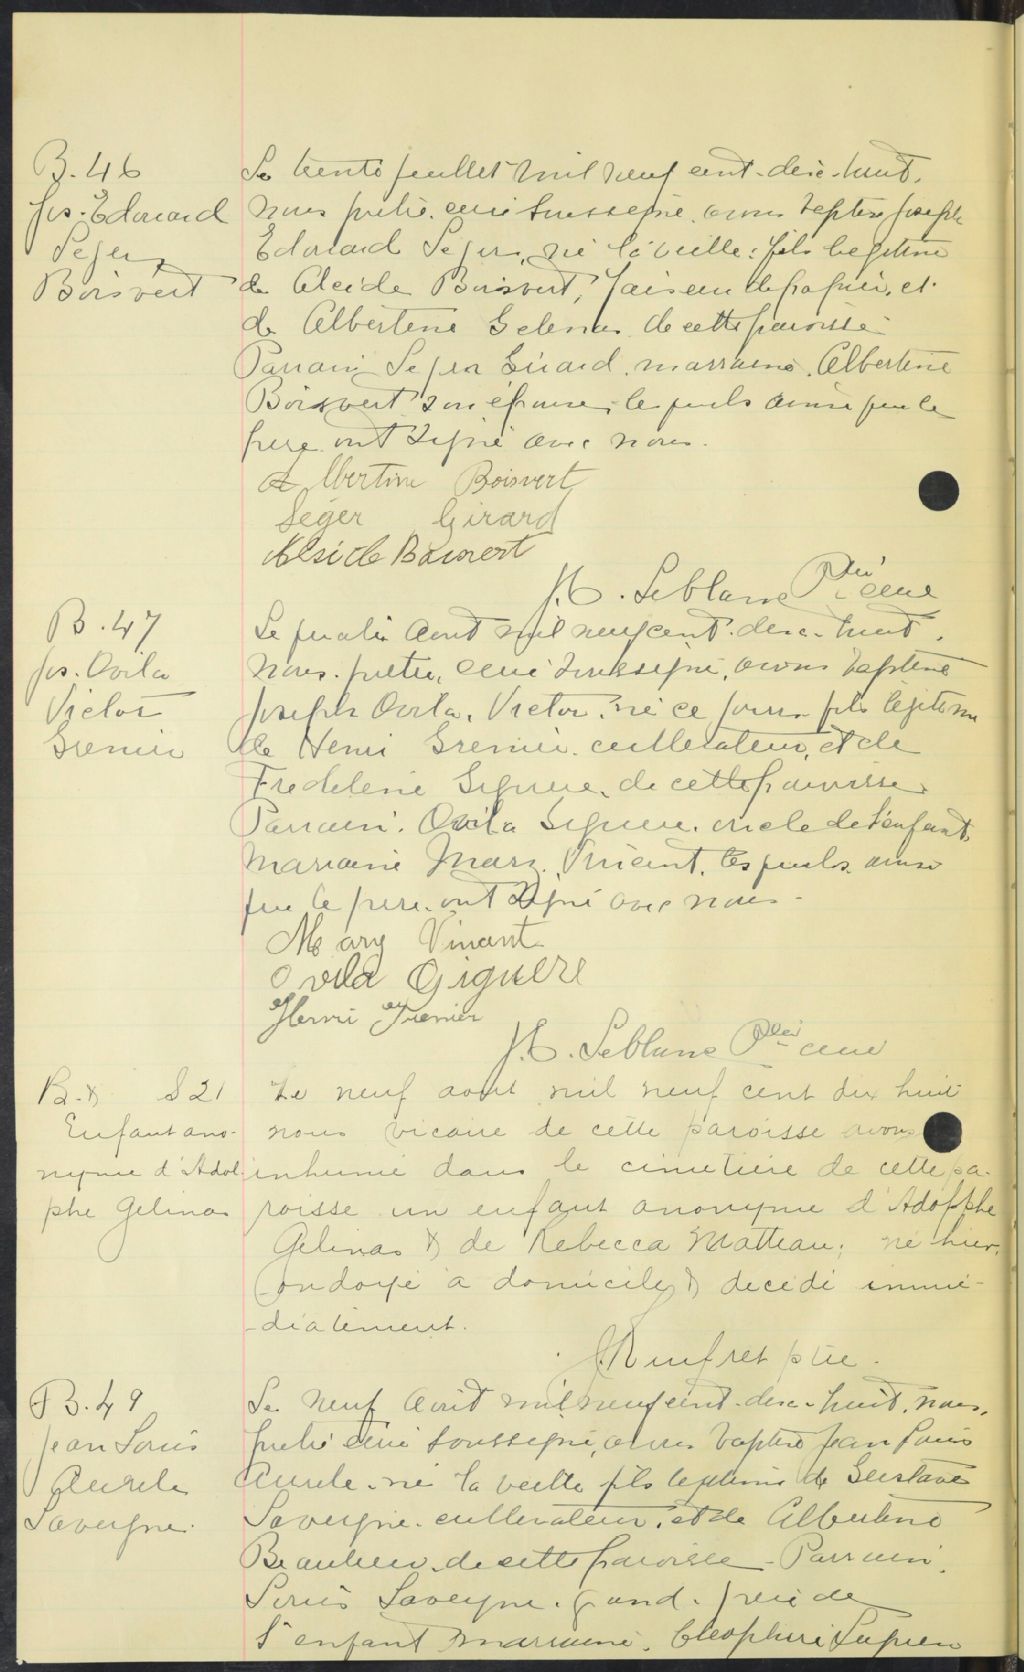 B. 46
Jos. Edouard
Seger
Boisvert
Le trente juillet mil neuf cent-dix-huit,
nous prêtre curé soussigné avons baptisé Joseph
Edouard Seger, né la veille : fils légitime
de Alcide Boisvert, faiseur de papier, et
de Albertine Gelinas de cette paroisse
Parrain Seger Girard, marraine Albertine
Boisvert son épouse, lesquels ainsi que le
père ont signé avec nous.
Albertine Boisvert
Séger Girard
Alside Boisvert
J.E. Leblanc Ptre curé
B. 47
Jos. Ovila
Victor
Grenier
Le quatre Aout mil neuf cent-dix-huit,
nous prêtre, curé soussigné, avons baptisé
Joseph Ovila, Victor, né ce jour fils légitime
de Henri Grenier cultivateur, et de
Fredeline Giguere, de cette paroisse
Parrain Ovila Giguere, oncle de l'enfant,
marraine Mary Vincent, lesquels ainsi
que le père ont signé avec nous.
Mary Vincent
Ovila Giguere
Henri Grenier
J.E. Leblanc Ptre curé
B. & S 21
Enfant ano-
nyme d'Adol-
phe Gelinas
Le neuf aout mil neuf cent dix huit
nous vicaire de cette paroisse avons
inhumé dans le cimetière de cette pa-
roisse un enfant anonyme d'Adolphe
Gelinas & de Rebecca Matteau; né hier,
ondoyé à domicile & décédé immé-
-diatement.
ptre.
B. 49
Jean Louis
Aurele
Lavergne
Le neuf Aout mil neuf cent-dix-huit, nous,
prêtre curé soussigné, avons baptisé Jean Louis
Aurele né la veille fils légitime de Gustave
Lavergne cultivateur, et de Albertine
Beaulieu de cette paroisse - Parrain
Louis Lavergne, grand-père de
l'enfant marraine, Cleophire Lupien